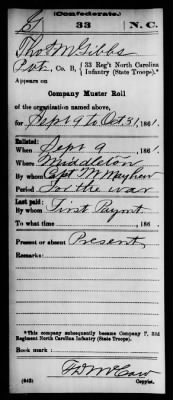 (Confederate.)
G | 33 | N. C.
Thos M Gibbs
Pvt, Co. B, 33 Reg't North Carolina Infantry (State Troops).*
Appears on
Company Muster Roll
of the organization named above,
for Sept 9 to Oct 31, 1861.
Enlisted:
When Sept 9, 1861.
Where Middleton
By whom Capt. Mayhew
Period For the war
Last paid:
By whom First Paymt.
To what time , 186 .
Present or absent Present
Remarks:
*This company subsequently became Company F, 33d
Regiment North Carolina Infantry (State Troops).
Book mark:
(642)
Copyist.